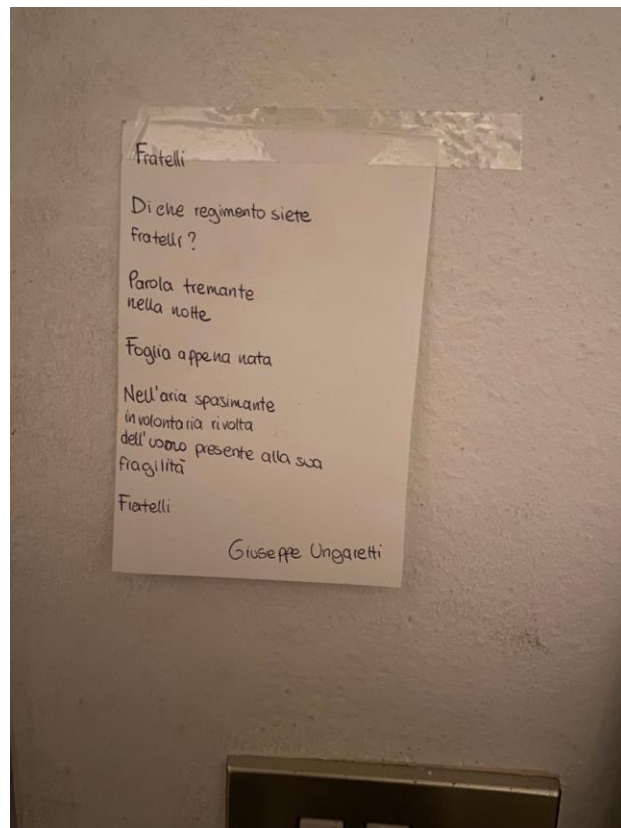 Fratelli
Di che regimento siete
fratelli?
Parola tremante
nella notte
Foglia appena nata
Nell'aria spasimante
involontaria rivolta
dell'uomo presente alla sua
fragilità
Fratelli
Giuseppe Ungaretti